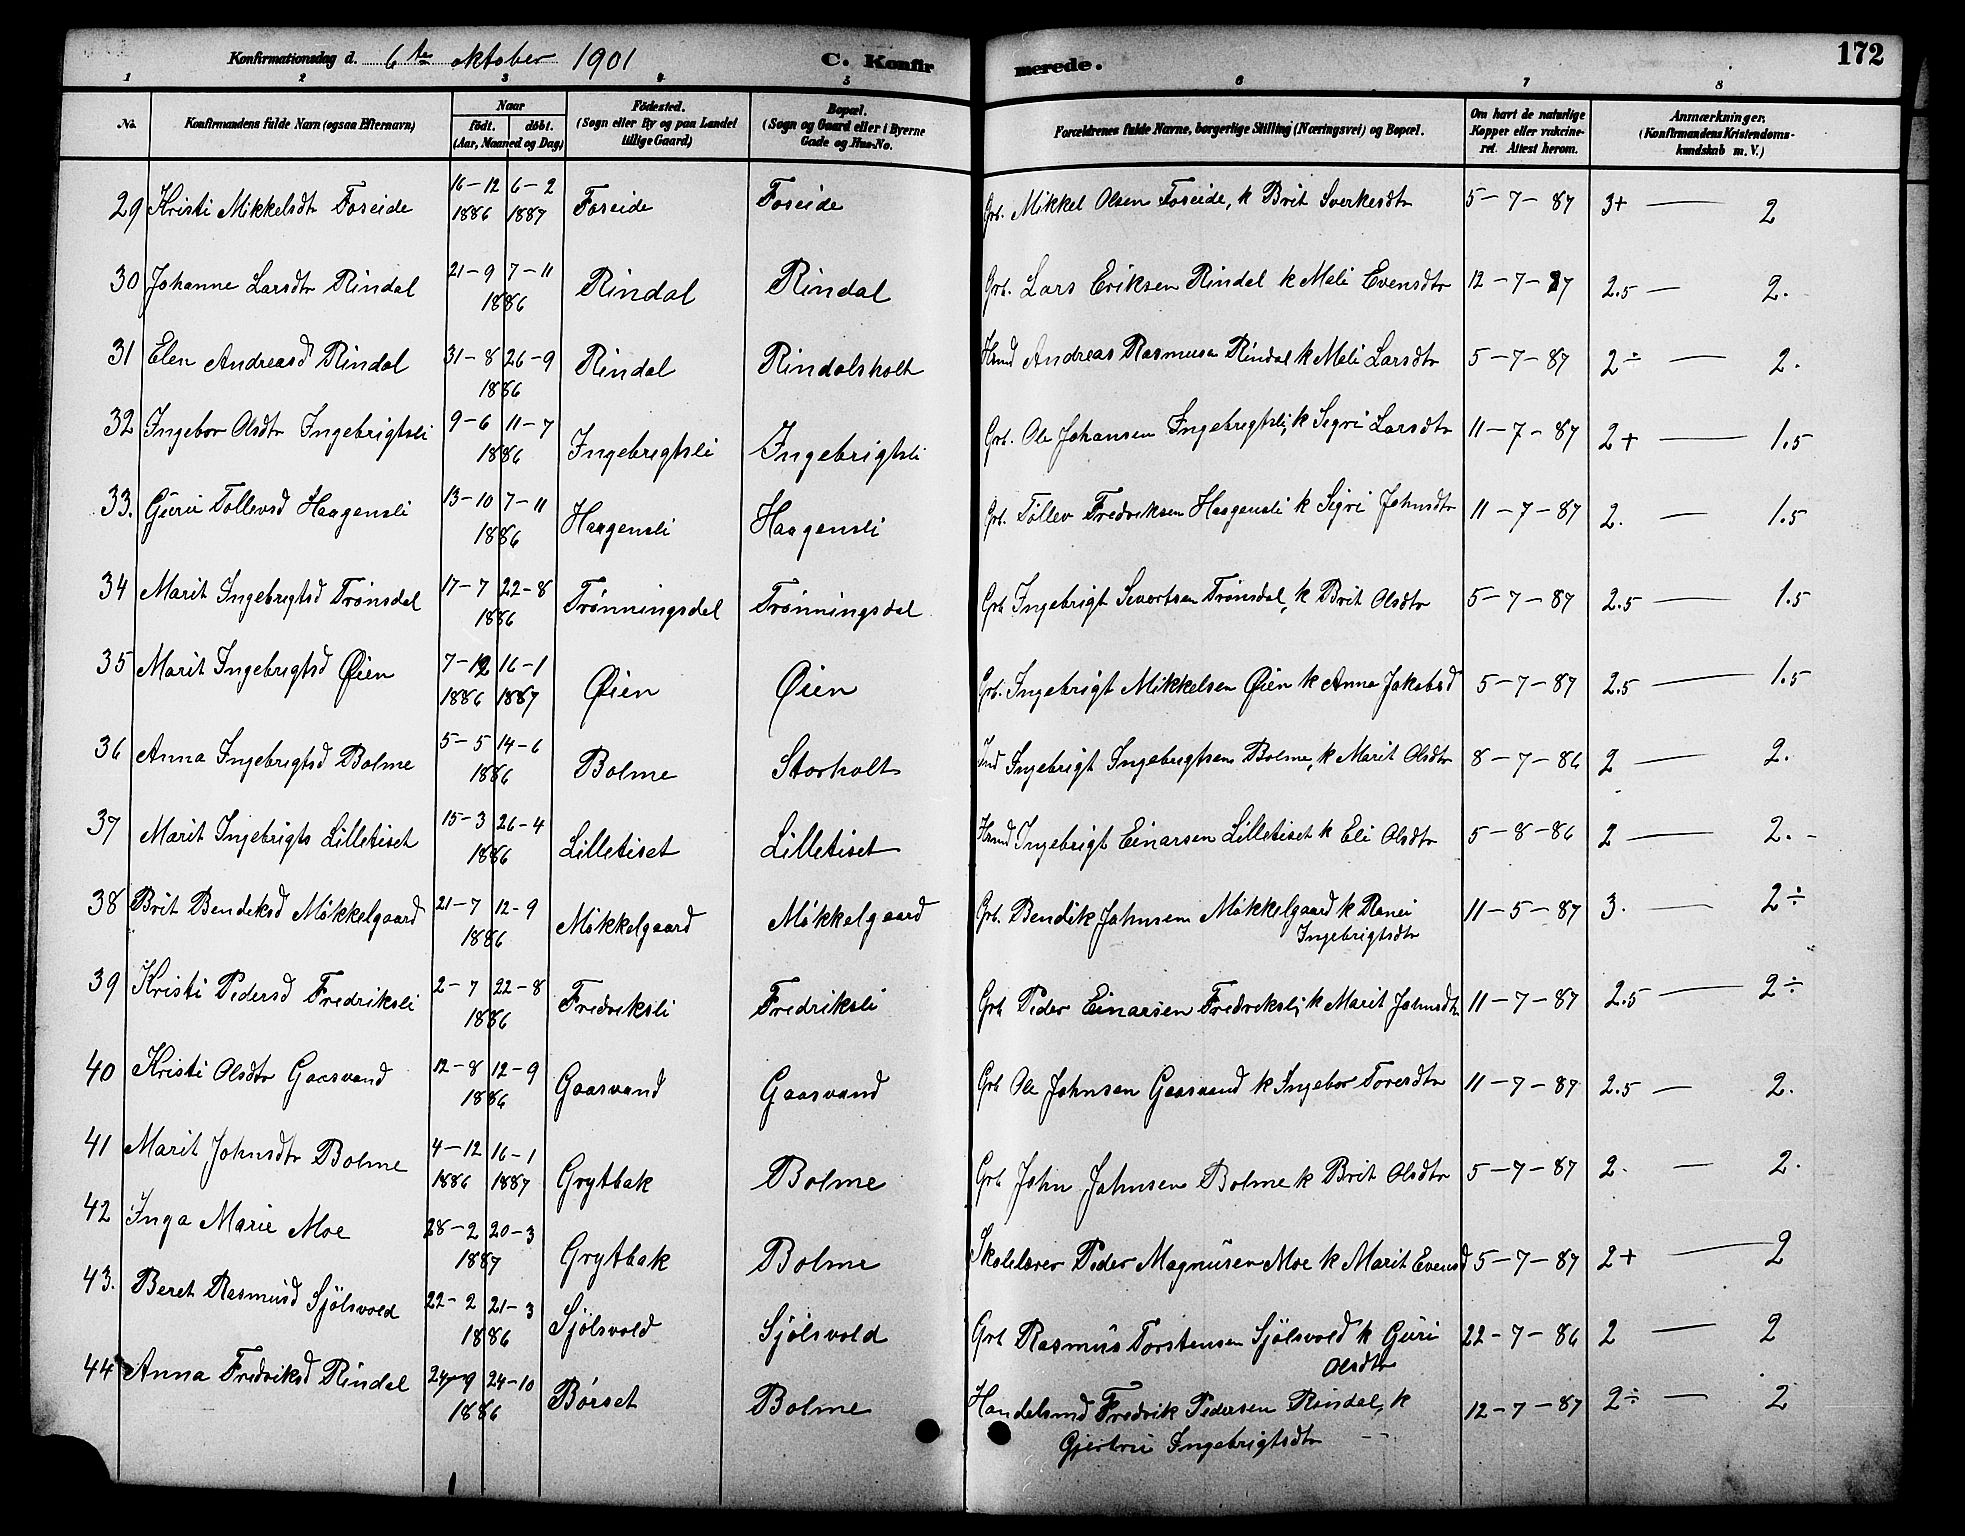 Konfirmationsdag d. 6te oktober 1901 C. Konfirmerede. 172
1 2 3 4 5 6 7 8
No. Konfirmandens fulde Navn (ogsaa Efternavn) Naar født. døbt. (Aar, Maaned og Dag) Födested. (Sogn eller By og paa Landet tillige Gaard) Bopæl. (Sogn og Gaard eller i Byerne Gade og Hus-No. Forældrenes fulde Navne, borgerlige Stilling (Næringsvei) og Bopæl. Om havt de naturlige Kopper eller vakcineret. Attest herom. Anmærkninger. (Konfirmandens Kristendomskundskab m. V.)
29 Kristi Mikkelsdtr Foseide 16-12 1886 6-2 1887 Foseide Foseide Grb. Mikkel Olsen Foseide, k Brit Sverkesdtr 5-7-87 3+ — 2
30 Johanne Larsdtr Rindal 21-9 7-11 1886 Rindal Rindal Grb. Lars Eriksen Rindal k Mali Evensdtr 12-7-87 2.5 — 2.
31 Elen Andreasd Rindal 31-8 26-9 1886 Rindal Rindalsholt Hmd Andreas Rasmusen Rindal k Mali Larsdtr 5-7-87 2÷ — 2.
32 Ingebor Olsdtr Ingebrigtsli 9-6 11-7 1886 Ingebrigtsli Ingebrigtsli Grb. Ole Johansen Ingebrigtsli, k Sigri Larsdtr 11-7-87 2+ — 1.5
33. Guri Tollevsd Haagensli 13-10 7-11 1886 Haagensli Haagensli Grb. Tøllev Fredriksen Haagensli k Sigri Johnsdtr 11-7-87 2. — 1.5
34 Marit Ingebrigtsd Trønsdal 17-7 22-8 1886 Trønningsdal Trønningsdal Grb Ingebrigt Sivertsen Trønsdal, k Brit Olsdtr 5-7-87 2.5 — 1.5
35 Marit Ingebrigtsd Øien 7-12 1886 16-1 1887 Øien Øien Grb. Ingebrigt Mikkelsen Øien k Anna Jakobsd 5-7-87 2.5 — 1.5
36 Anna Ingebrigtsd Bolme 5-5 14-6 1886 Bolme Storholt Ind Ingebrigt Ingebrigtsen Bolme, k Marit Olsdtr 8-7-86 2 — 2.
37 Marit Ingebrigts Lilletiset 15-3 26-4 1886 Lilletiset Lilletiset Hmd Ingebrigt Einarsen Lilletiset k Eli Olsdtr 5-8-86 2 — 2.-
38 Brit Bendiksd Møkkelgaard 21-7 12-9 1886 Møkkelgaard Møkkelgaard Grb. Bendik Johnsen Møkkelgaard k Ranei
Ingebrigtsdtr 11-5-87 3. — 2÷
39 Kristi Pedersd Fredriksli 2-7 22-8 1886 Fredriksli Fredriksli Grb Peder Einarsen Fredriksli, k Marit Johnsdtr 11-7-87 2.5 — 2÷
40 Kristi Olsdtr Gaasvand 12-8 12-9 1886 Gaasvand Gaasvand Grb Ole Johnsen Gaasvand k Ingebor Toresdtr 11-7-87 2.5 — 2.
41 Marit Johnsdtr Bolme 4-12 1886 16-1 1887 Grytbak Bolme Grb John Johnsen Bolme k Brit Olsdtr 5-7-87 2. — 2.
42 Inga Marie Moe 28-2 20-3 1887 Grytbak Bolme Skolelærer Peder Magnusen Moe k Marit Evensd 5-7-87 2+ — 2
43. Beret Rasmusd Sjølsvold 22-2 21-3 1886 Sjølsvold Sjølsvold Grb Rasmus Torstensen Sjølsvold k Guri
Olsdtr 22-7-86 2 — 2
44 Anna Fredriksd Rindal 24-9 24-10 1886 Børset Bolme Handelsmd Fredrik Pedersen Rindal, k
Gjertru Ingebrigtsdtr 12-7-87 2÷ — 2